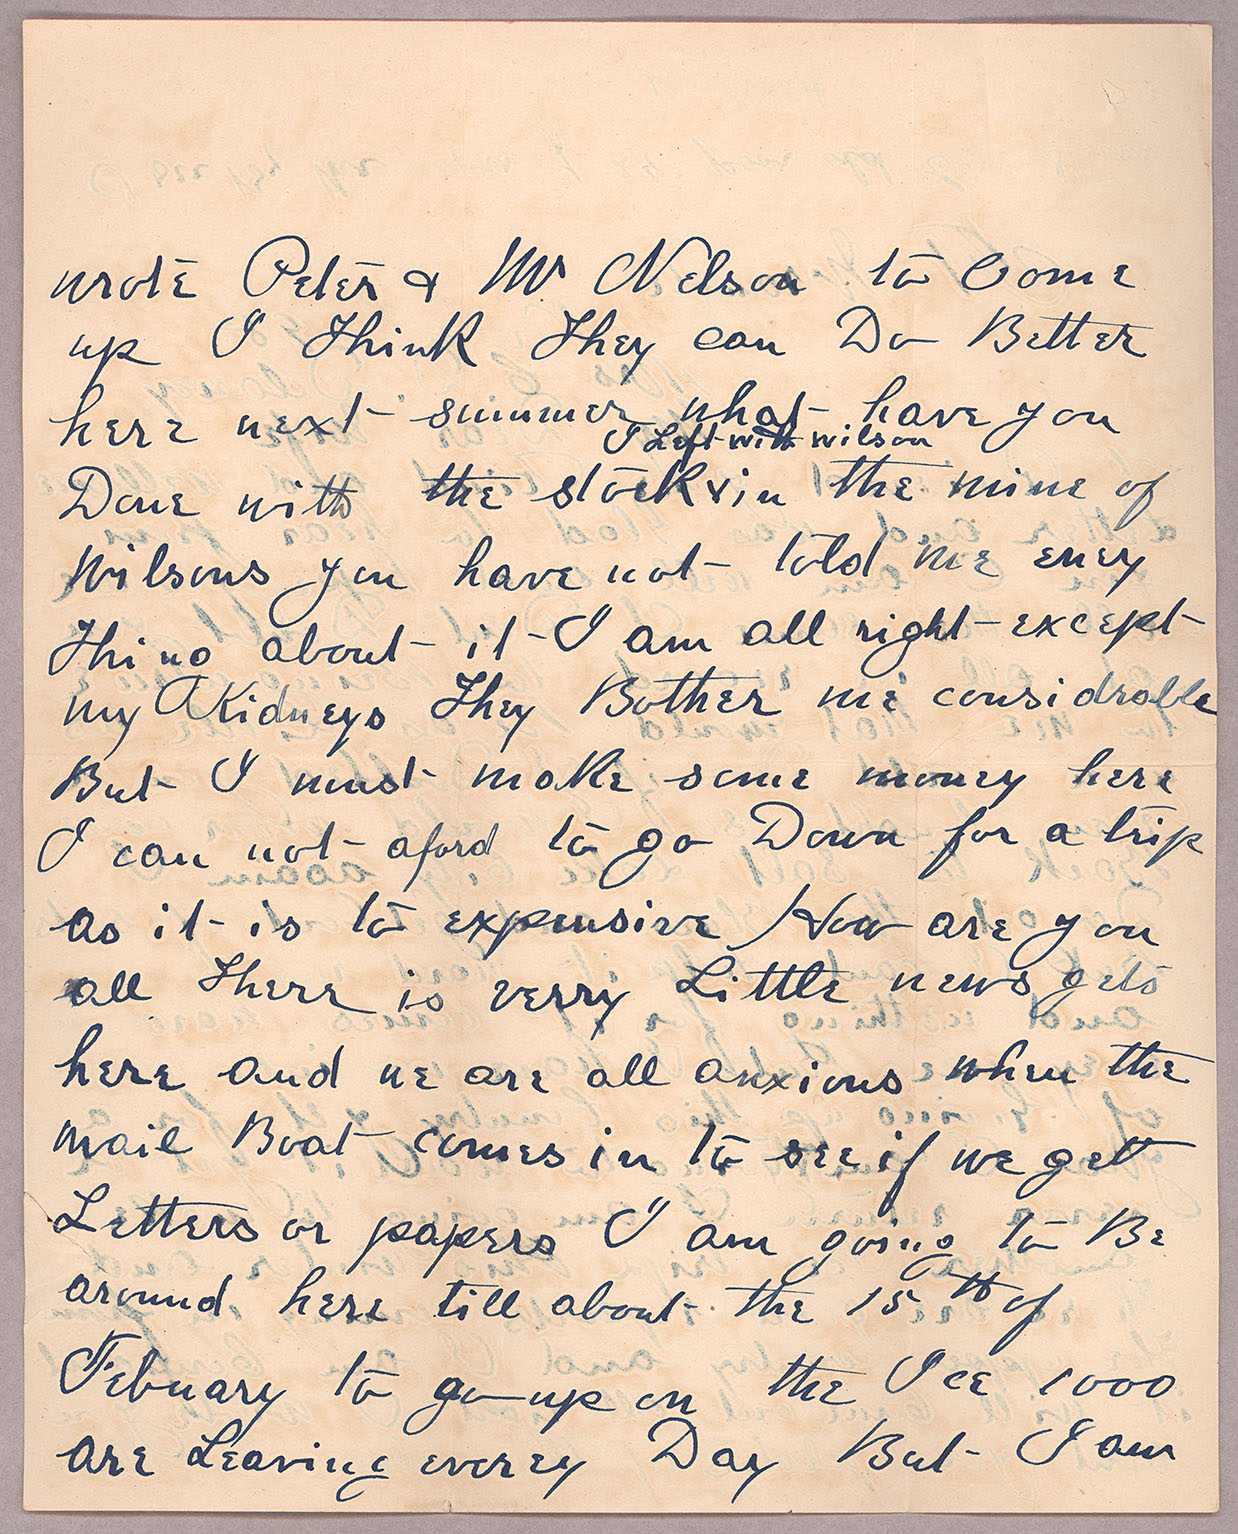 wrote Peter & Mr Nelson to Come
up I Think They can Do Better
here next summer what have you
I Left with wilson
Done with the stock x in the mine of
Wilsons you have not told me eney
Thing about it I am all right except
my Kidneys They Bother me considrable
But I must make some money here
I can not aford to go Down for a trip
as it is to expensive How are you
all There is verry Little news gets
here and we are all anxious when the
mail Boat comes in to see if we get
Letters or papers I am going to Be
around here till about the 15th of
Febuary to go up on the Ice 1000
are Leaving everey Day But I am